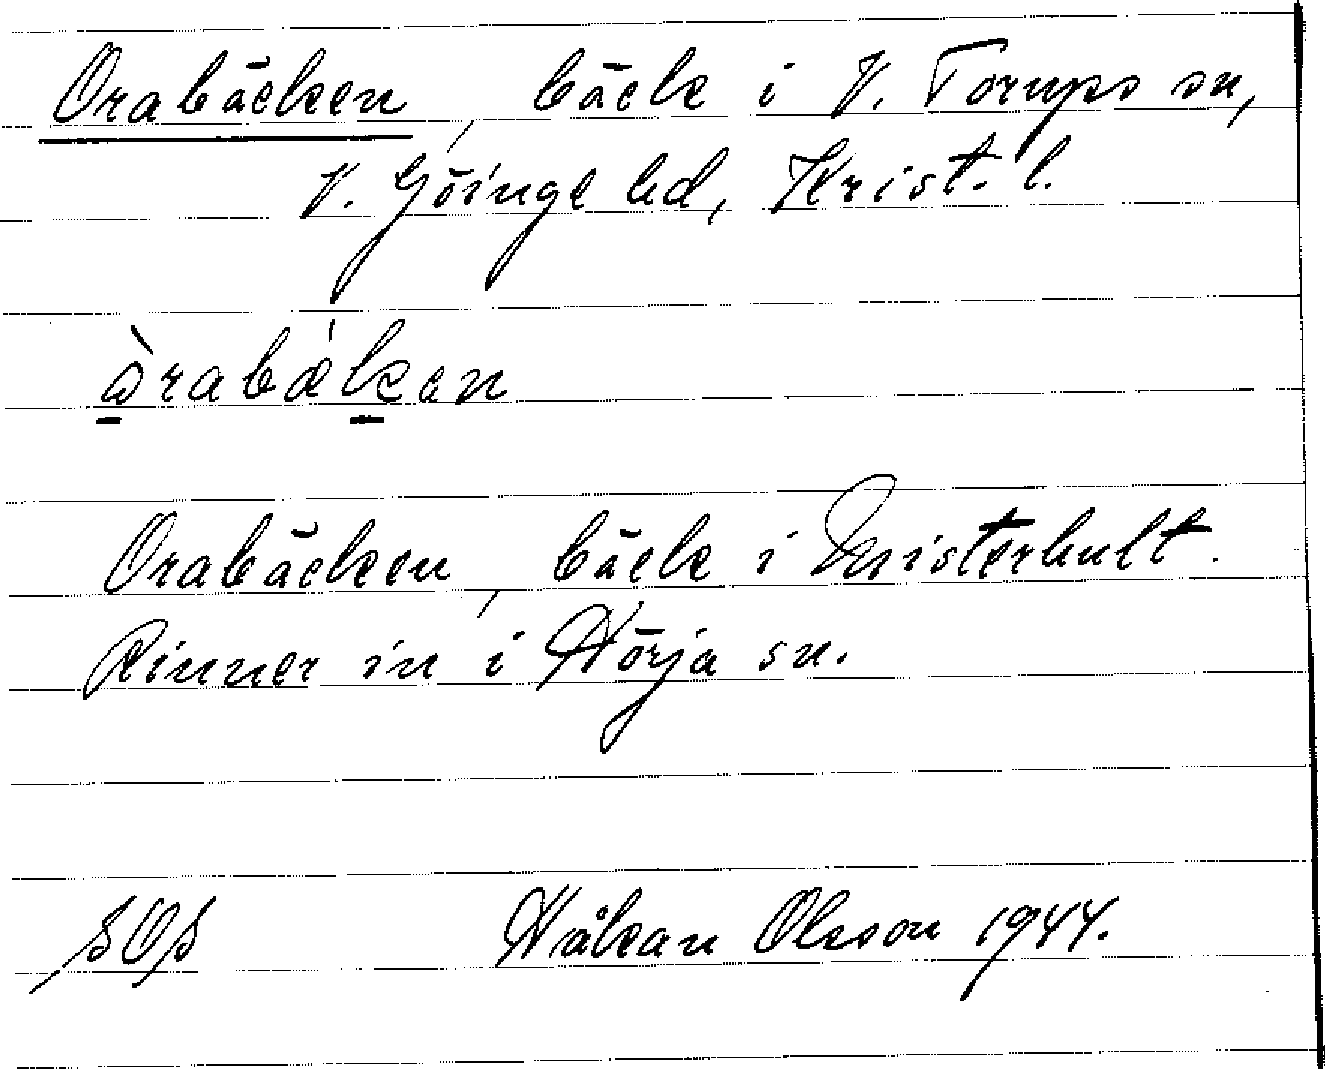 Orabäcken, bäck i V. Torups sn,
V. Göinge hd, Krist. l.
òrabækan
Orabäcken, bäck i Misterhult.
Rinner in i Nörja sn.
SOS Håkan Olsson 1944.